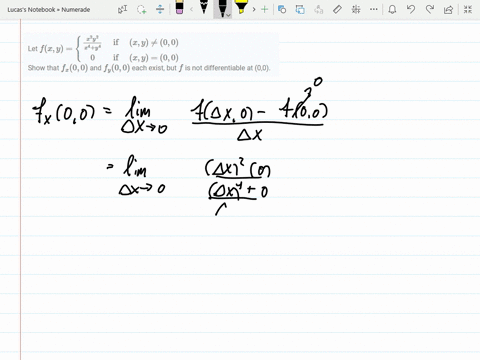 Lucas's Notebook • Numerade
Let f(x, y) = { x²y² / x⁴+y⁴ if (x, y) ≠ (0, 0)
0 if (x, y) = (0, 0)
Show that fₓ(0, 0) and f_y(0, 0) each exist, but f is not differentiable at (0,0).
fₓ(0,0) = lim Δx→0 f(Δx, 0) − f(0,0) / Δx → 0
= lim Δx→0 (Δx)² (0) / (Δx)⁴ + 0